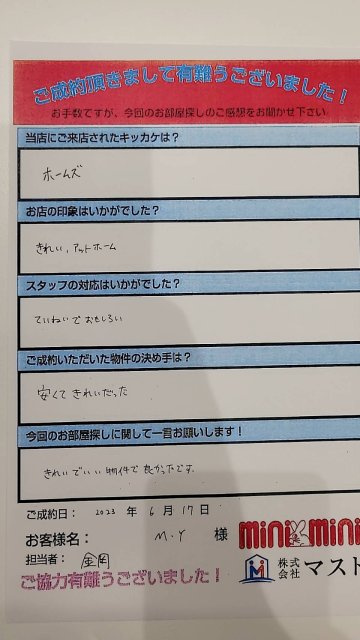 ご成約頂きまして有難うございました！
お手数ですが、今回のお部屋探しのご感想をお聞かせ下さい
当店にご来店されたキッカケは？
ホームズ
お店の印象はいかがでした？
きれい、アットホーム
スタッフの対応はいかがでした？
ていねいでおもしろい
ご成約いただいた物件の決め手は？
安くてきれいだった
今回のお部屋探しに関して一言お願いします！
きれいでいい物件で良かったです。
ご成約日： 2023 年 6月 17日
お客様名： M.Y 様
mini mini
担当者： 金岡
株式会社 マスト
ご協力有難うございました！